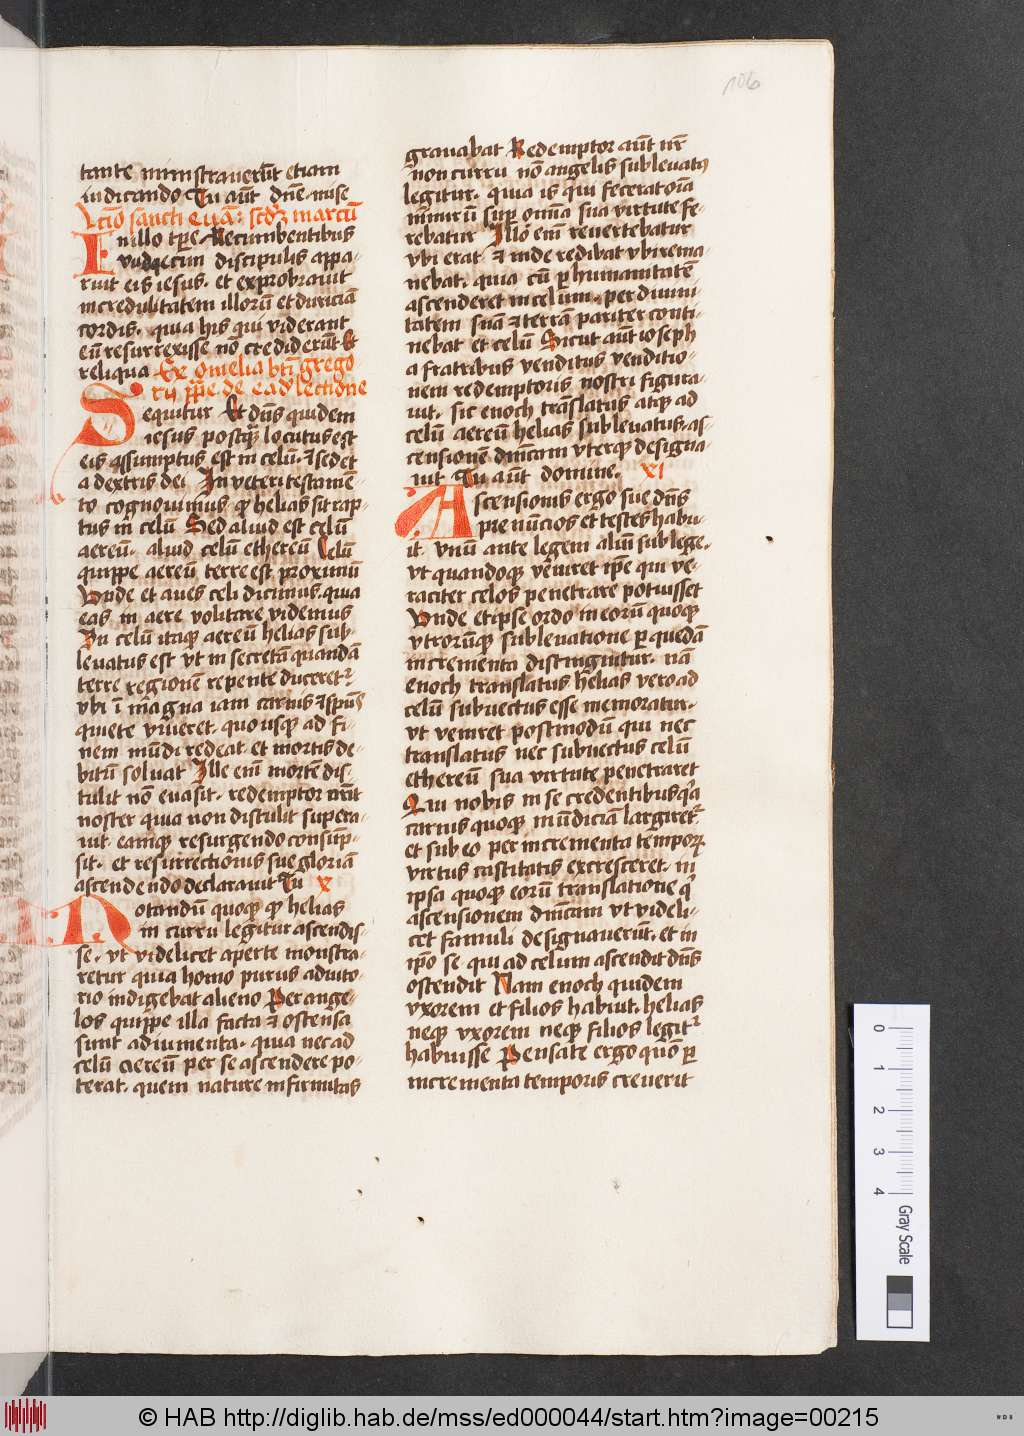 106
tante ministraverūt etiam
iudicando Tu aūt dn̄e mise
Lctio sancti Euā: scdꝫ marcū
In illo tp̄re Recumbentibus
vndecim discipulis appa-
ruit eis iesus. et exprobrauit
incredulitatem illorū et duriciā
cordis. quia his qui viderant
eū resurrexisse nō crediderūt Et
reliqua Ex omelia bt̄i grego
rij pp̄e de eadē lectione
Sequitur Et dn̄s quidem
iesus postqꝫ locutus est
eis assumptus est in celū. ⁊ sedet
a dextris dei In veteri testamē-
to cognouimus qꝫ helias sit rap-
tus in celū Sed aliud est celū
aereū. aliud celū ethereū Celū
quippe aereū terre est proximū
Vnde et aues celi dicimus. quia
eas in aere volitare videmus
In celū itaqꝫ aereū helias sub-
leuatus est vt in secretā quandā
terre regionē repente duceretᷣ
vbi ī magna iam carnis ⁊ spūs
quiete viueret. quousqꝫ ad fi-
nem mūdi redeat et mortis de-
bitū soluat Ille em̄ mortē dis-
tulit nō euasit. redemptor
noster quia non distulit supera-
uit. eamqꝫ resurgendo consūp-
sit. et resurrectionis sue gloriā
ascendendo declarauit Tu x
Notandū quoqꝫ qꝫ helias
in curru legitur ascendis-
se. vt videlicet aperte monstra-
retur quia homo purus adiuto-
rio indigebat alieno Per ange-
los quippe illa facta ⁊ ostensa
sunt adiumenta. quia nec ad
celū aereū per se ascendere po-
terat. quem nature infirmitas
grauabat Redemptor aūt nr̄
non curru nō angelis subleuatꝰ
legitur. quia is qui fecerat oīa
nimirū sup̄ omīa sua virtute fe-
rebatur Illo em̄ reuertebatur
vbi erat ⁊ inde redibat vbi rema-
nebat. quia cū ꝑ humanitatē
ascenderet in celum. per diuini-
tatem suā ⁊ terrā pariter conti-
nebat et celū Sicut aūt ioseph
a fratribus venditus venditio-
nem redemptoris nostri figura-
uit. sic enoch trāslatus atqꝫ ad
celū aereū helias subleuatus. as-
censionē dn̄icam vterqꝫ designa-
uit Tu aūt domine. xi
Ascensionis ergo sue dn̄s
prenūcios et testes habu-
it. vnū ante legem aliū sub lege.
vt quandoqꝫ veniret ip̄e qui ve-
raciter celos penetrare potuisset
Vnde et ipse ordo in eorū quoqꝫ
vtrorūqꝫ subleuatione ꝑ quedā
incrementa distinguitur. nā
enoch translatus helias vero ad
celū subuectus esse memoratur.
vt veniret postmodū qui nec
translatus nec subuectus celū
ethereū sua virtute penetraret
Qui nobis in se credentibus
carnis quoqꝫ mūdiciā largiretᷣ
et sub eo per incrementa temporꝝ
virtus castitatis excresceret. in
ipsa quoqꝫ eorū translatione
ascensionem dn̄icam vt videli-
cet famuli designauerūt. et in
ip̄o se qui ad celum ascendit dn̄s
ostendit Nam enoch quidem
vxorem et filios habuit. helias
neqꝫ vxorem neqꝫ filios legitᷣ
habuisse Pensate ergo quō ꝑ
incrementa temporis creuerit
0 1 2 3 4
Gray Scale
© HAB http://diglib.hab.de/mss/ed000044/start.htm?image=00215